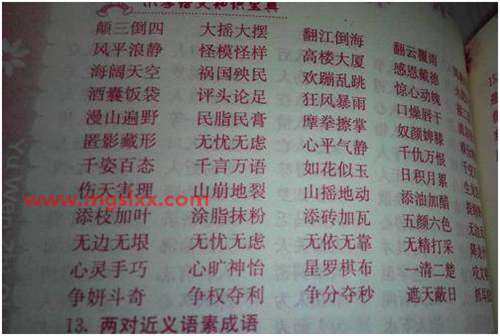 小学语文知识宝典
颠三倒四 大摇大摆 翻江倒海 翻云覆雨
风平浪静 怪模怪样 高楼大厦 感恩戴德
海阔天空 祸国殃民 欢蹦乱跳 惊心动魄
酒囊饭袋 评头论足 狂风暴雨 口燥唇干
漫山遍野 民脂民膏 摩拳擦掌 奴颜婢膝
匿影藏形 无忧无虑 心平气静 千仇万恨
千姿百态 千言万语 如花似玉 日积月累
伤天害理 山崩地裂 山摇地动 添油加醋
www.mgslxx.com
添枝加叶 涂脂抹粉 添砖加瓦 五颜六色
无边无垠 无忧无虑 无依无靠 无精打采
心灵手巧 心旷神怡 星罗棋布 一清二楚
争妍斗奇 争权夺利 争分夺秒 遮天蔽日
13. 两对近义语素成语